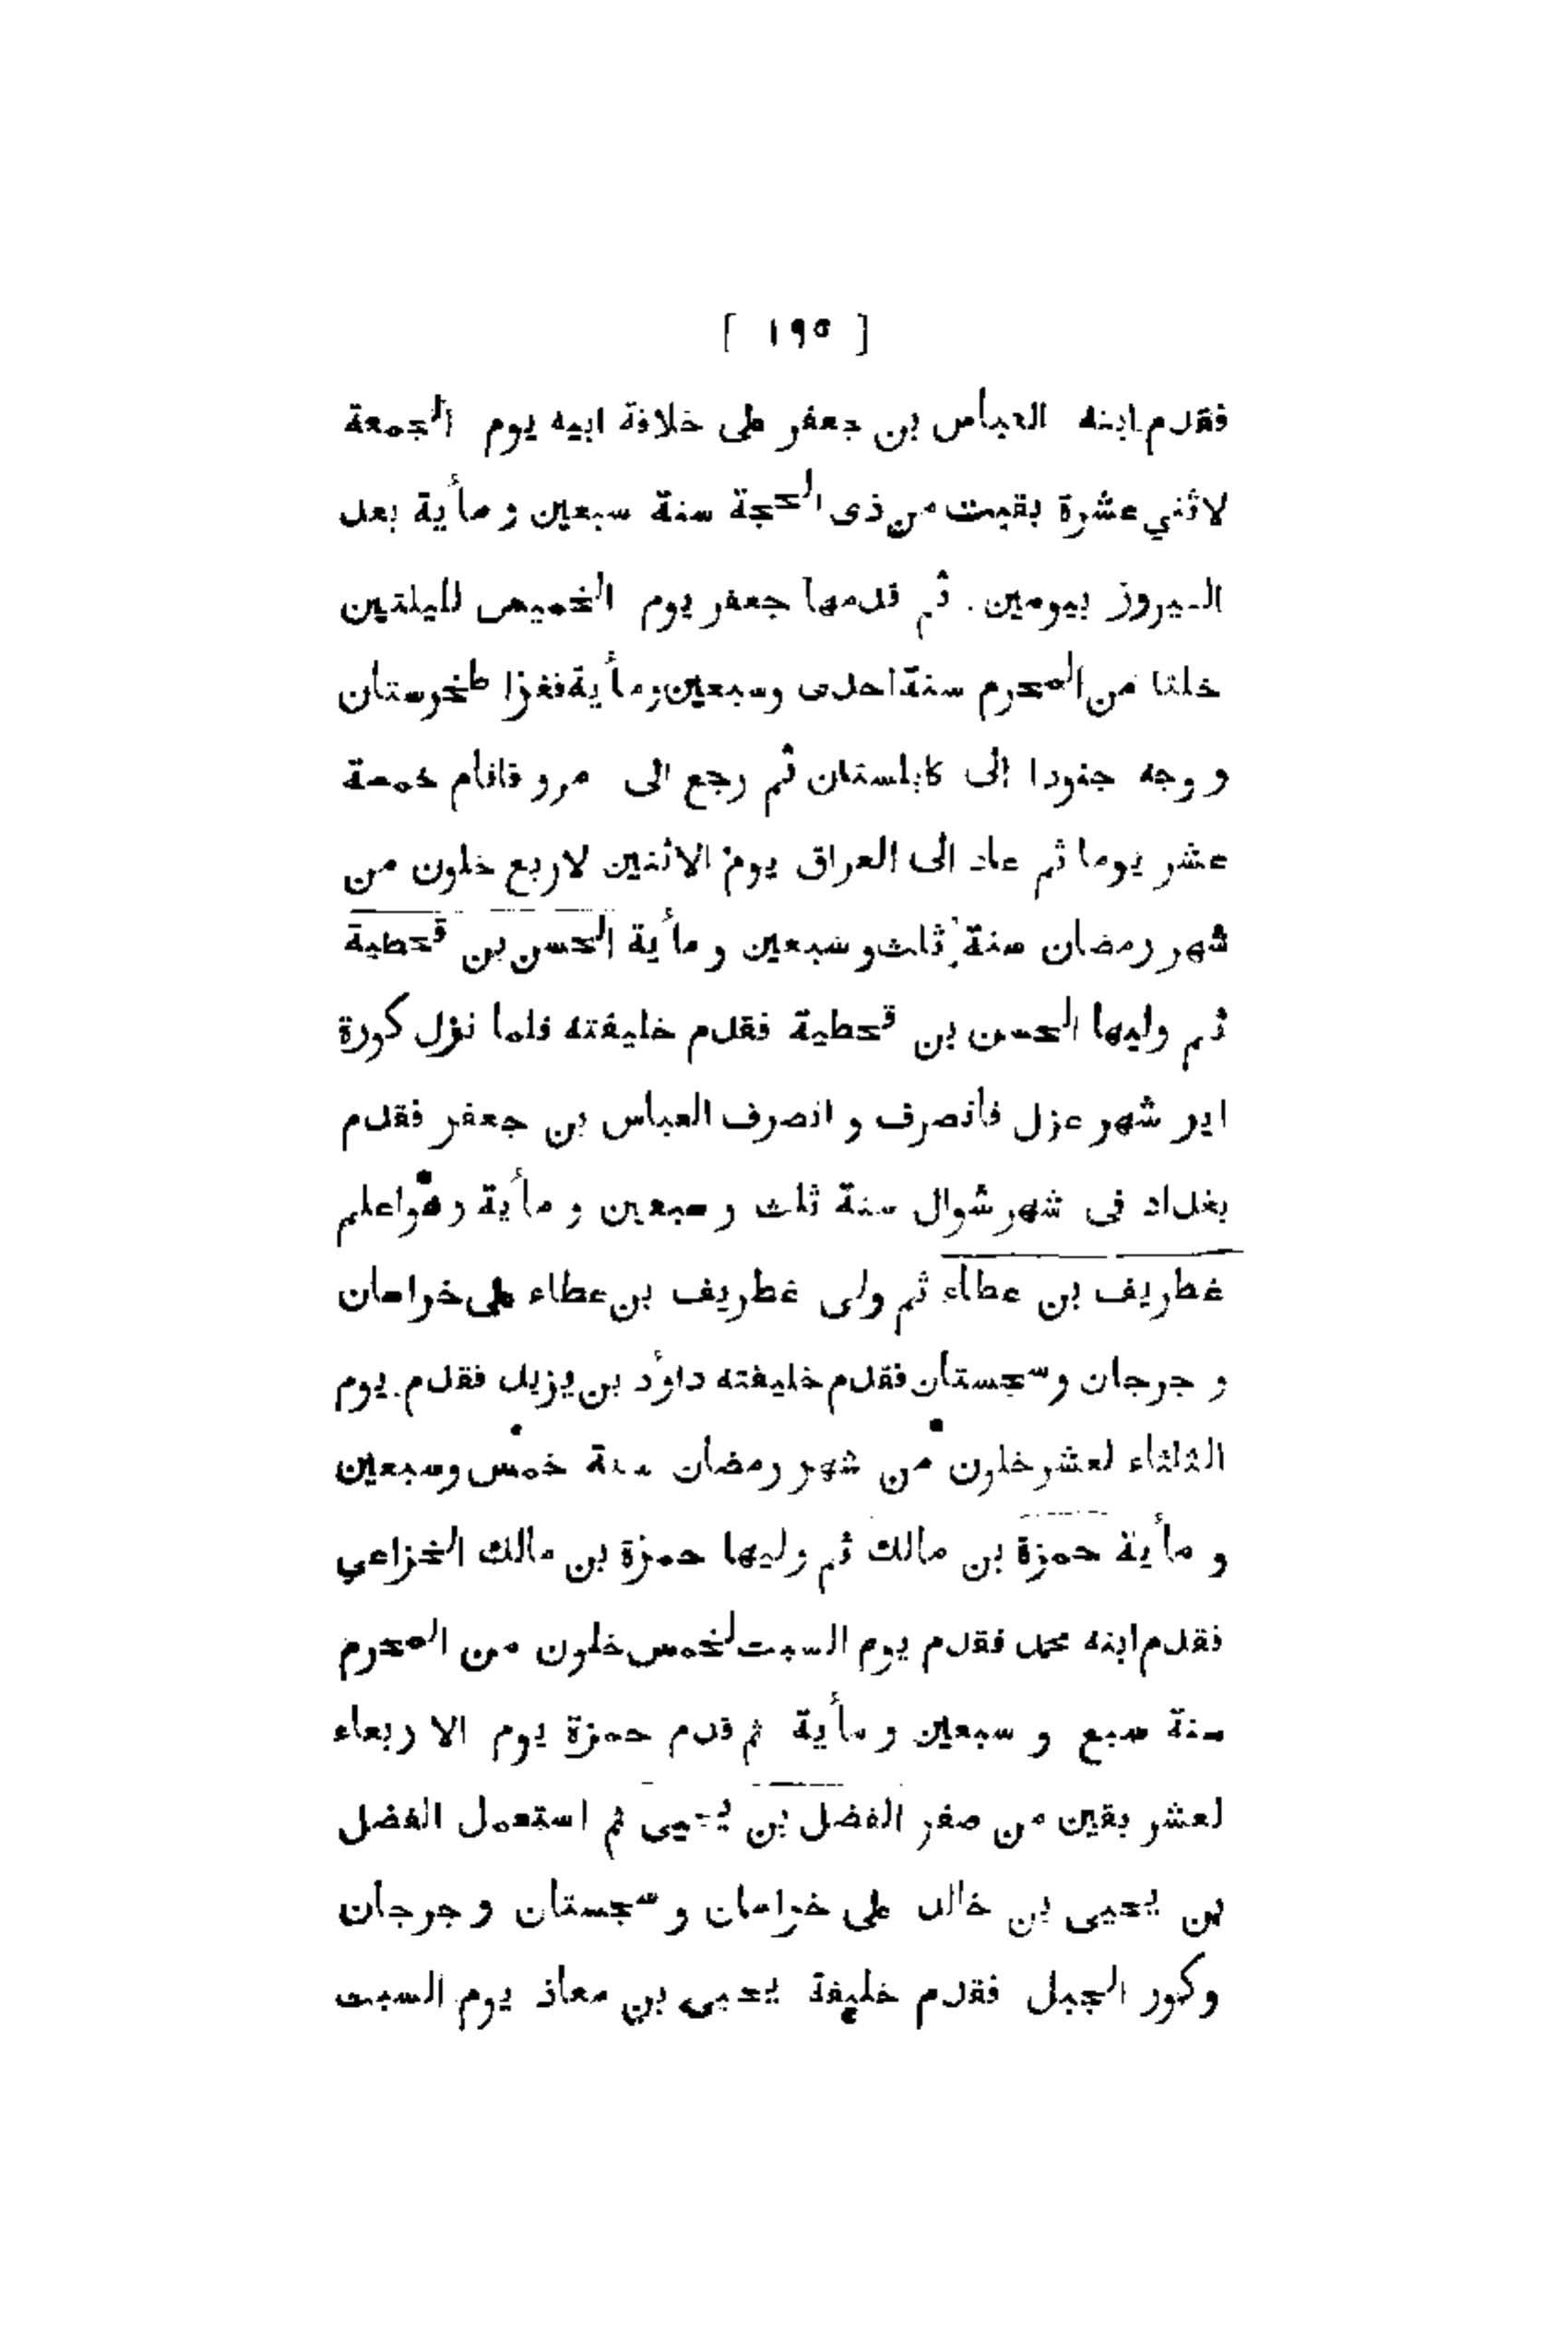 [ ١٩٥ ]
فقدم ابنه العباس بن جعفر على خلافة ابيه يوم الجمعة
لاثني عشرة بقيت من ذى الحجة سنة سبعين و مأية بعد
النيروز بيومين . ثم قدمها جعفر يوم الخميس لليلتين
خلتا من المحرم سنة احدى وسبعين ومأية فغزا طخرستان
و وجه جنودا الى كابلستان ثم رجع الى مرو فاقام خمسة
عشر يوما ثم عاد الى العراق يوم الاثنين لاربع خلون من
شهر رمضان سنة ثلث و سبعين و مأية الحسن بن قحطبة
ثم وليها الحسن بن قحطبة فقدم خليفته فلما نزل كورة
ابر شهر عزل فانصرف و انصرف العباس بن جعفر فقدم
بغداد فى شهر شوال سنة ثلث و سبعين و مأية وهو اعلم
غطريف بن عطاء ثم ولى غطريف بن عطاء على خراسان
و جرجان و سجستان فقدم خليفته داؤد بن يزيد فقدم يوم
الثلثاء لعشر خلون من شهر رمضان سنة خمس وسبعين
و مأية حمزة بن مالك ثم وليها حمزة بن مالك الخزاعي
فقدم ابنه محمد فقدم يوم السبت لخمس خلون من المحرم
سنة سبع و سبعين و مأية ثم قدم حمزة يوم الاربعاء
لعشر بقين من صفر الفضل بن يحيى ثم استعمل الفضل
بن يحيى بن خالد على خراسان و سجستان و جرجان
وكور الجبل فقدم خليفة يحيى بن معاذ يوم السبت